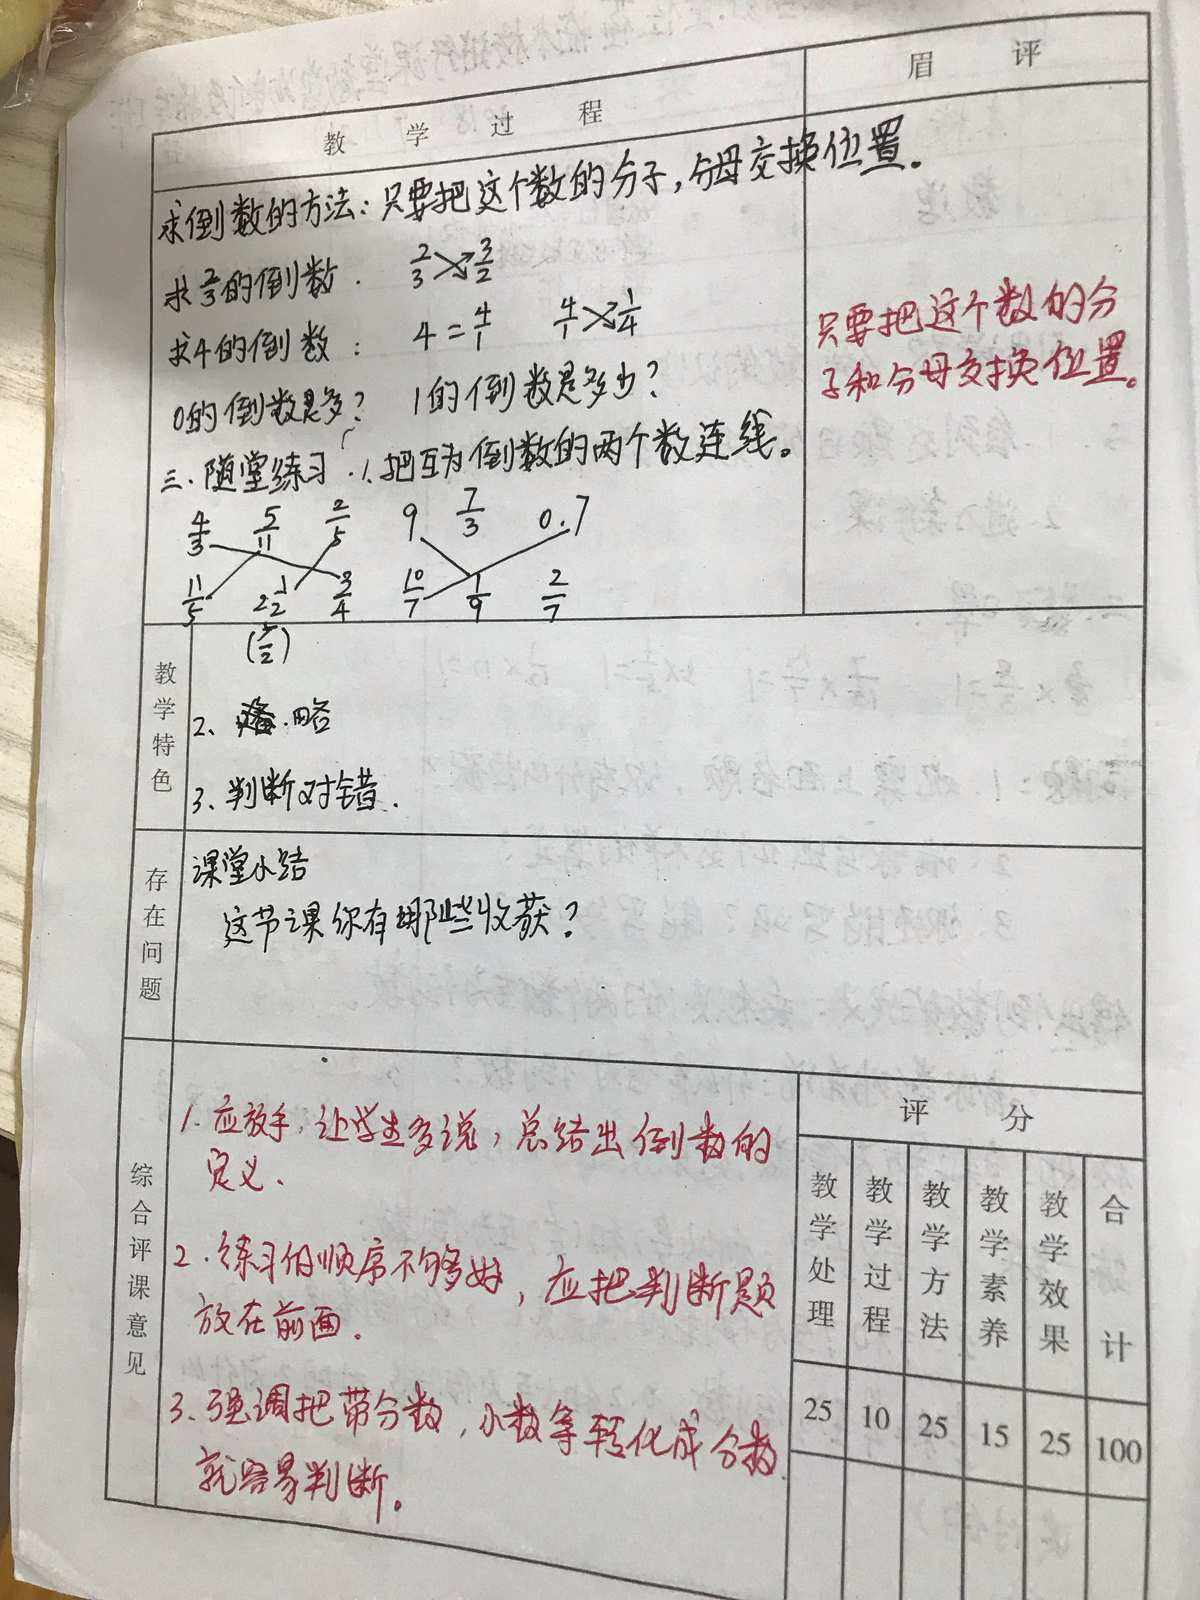 教学过程
眉评
求倒数的方法：只要把这个数的分子，分母交换位置。
求2/3的倒数. 2/3 3/2
求4的倒数： 4=4/1 4/1 1/4
0的倒数是多？ 1的倒数是多少？
三.随堂练习.1.把互为倒数的两个数连线。
4/3 5/11 2/5 9 7/3 0.7
11/5 2 1/2 3/4 10/7 1/9 2/7
(5/2)
只要把这个数的分
子和分母交换位置。
教学特色
2、略
3、判断对错.
存在问题
课堂小结
这节课你有哪些收获？
综合评课意见
1.应放手，让学生多说，总结出倒数的
定义.
2.练习的顺序不够好，应把判断题
放在前面.
3.强调把带分数，小数等转化成分数
就容易判断。
评分
教学处理 教学过程 教学方法 教学素养 教学效果 合计
25 10 25 15 25 100